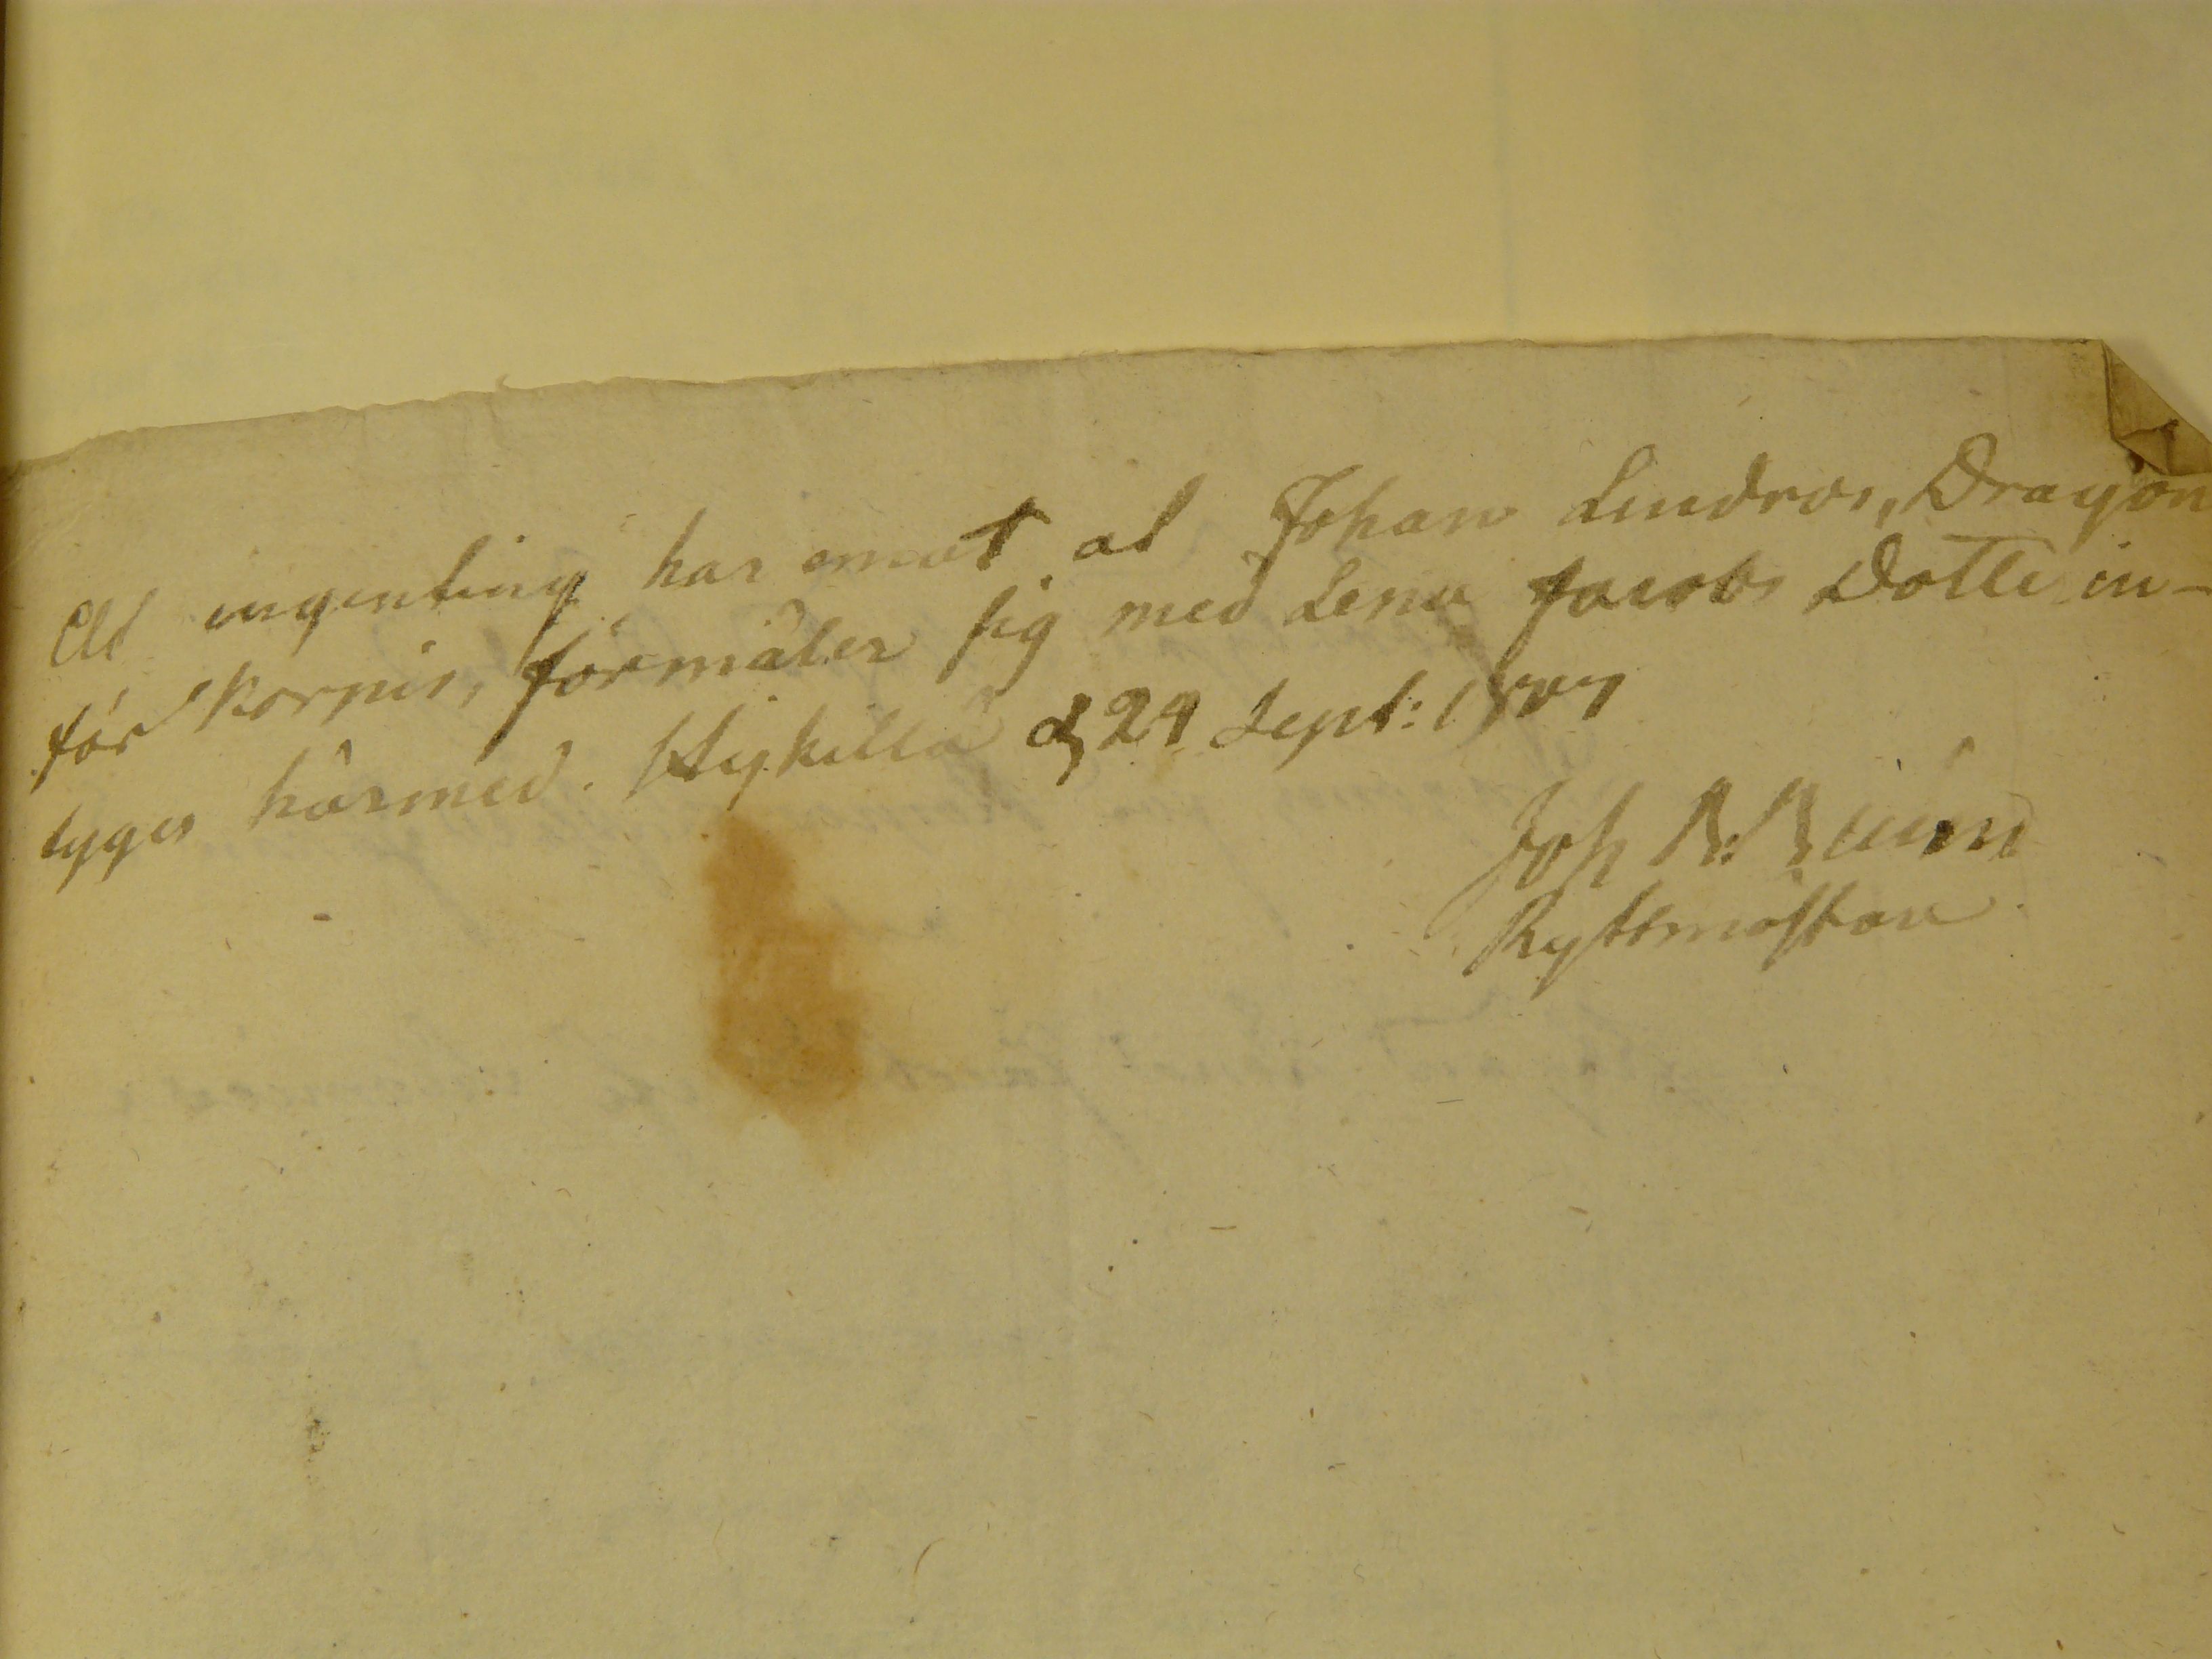 At ingenting har emot at Johan Lindros, Dragon
för Korpis, förmäler sig med Lena Jacobs Dotter in-
tyges härmed. Hykilla d 29 Sept: 1807
Joh
Ryttmästare